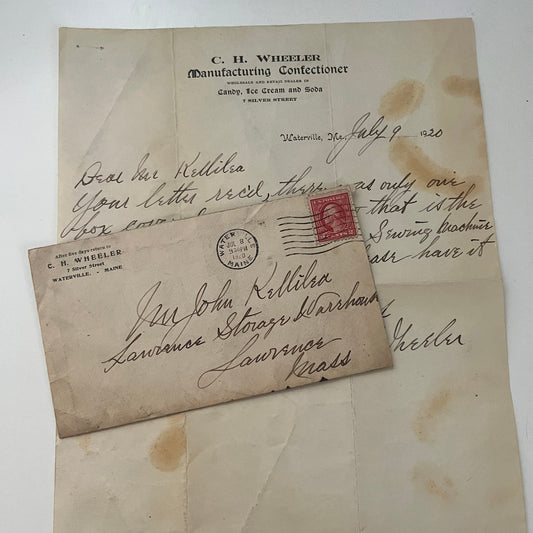 C. H. WHEELER
Manufacturing Confectioner
WHOLESALE AND RETAIL DEALER IN
Candy, Ice Cream and Soda
7 SILVER STREET
Waterville, Me., July 9 1920
Dear Mr Kellilea
Your letter rec'd, there as only one
box that is the
Sewing Machine
have it
Wheeler
After five days return to
C. H. WHEELER
7 Silver Street
WATERVILLE, - MAINE
WATERVILLE
JUL 8
PM
1920
MAINE
Mr John Kellilea
Lawrence Storage Warehouse
Lawrence
Mass